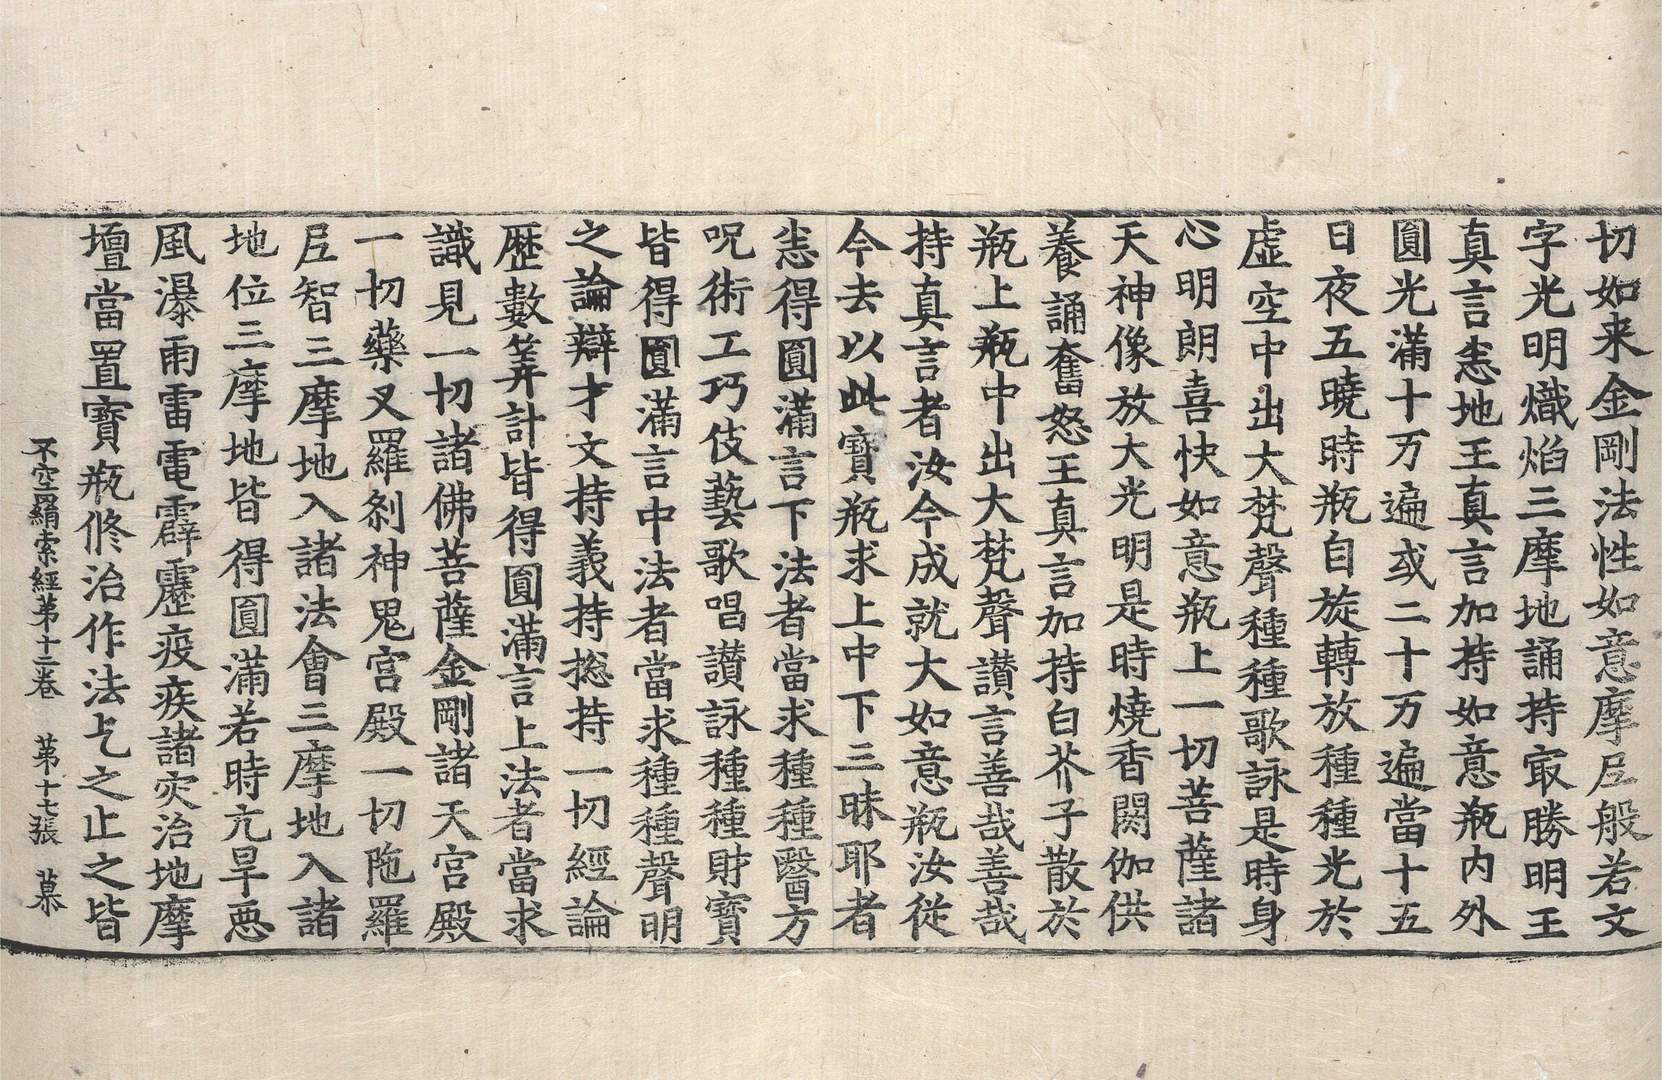 切如来金剛法性如意摩尼般若文
字光明熾焰三摩地誦持㝡勝明王
真言恚地王真言加持如意瓶内外
圓光滿十万遍或二十万遍當十五
日夜五曉時瓶自旋轉放種種光於
虚空中出大梵聲種種歌詠是時身
心明朗喜快如意瓶上一切菩薩諸
天神像放大光明是時燒香閼伽供
養誦奮怒王真言加持白芥子散於
瓶上瓶中出大梵聲讃言善哉善哉
持真言者汝今成就大如意瓶汝從
今去以此寶瓶求上中下三昧耶者
恚得圓滿言下法者當求種種醫方
呪術工巧伎藝歌唱讃詠種種財寶
皆得圓滿言中法者當求種種聲明
之論辯才文持義持捴持一切經論
歷數筭計皆得圓滿言上法者當求
識見一切諸佛菩薩金剛諸天宮殿
一切藥叉羅剎神鬼宮殿一切陁羅
尼智三摩地入諸法會三摩地入諸
地位三摩地皆得圓滿若時亢旱惡
風瀑雨雷電霹靂疫疾諸灾治地摩
壇當置寶瓶修治作法乞之止之皆
不空羂索經第十二卷　第十七張　慕